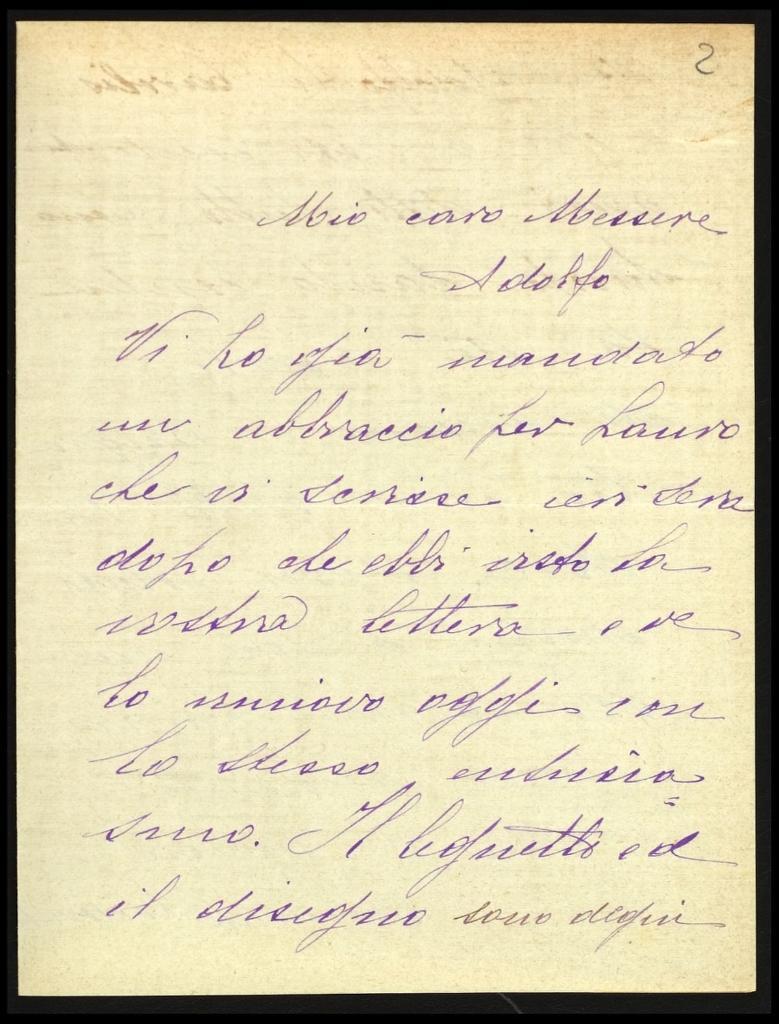 2
Mio caro Messere
Adolfo
Vi ho già mandato
un abbraccio per Lauro
che vi scrisse ieri sera
dopo che ebbi visto la
vostra lettera e ve
lo rinnovo oggi con
lo stesso entusia=
smo. Il legnetto ed
il disegno sono degni